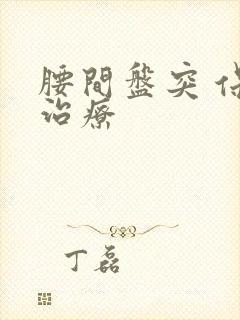 腰間盤突
治療
丁磊